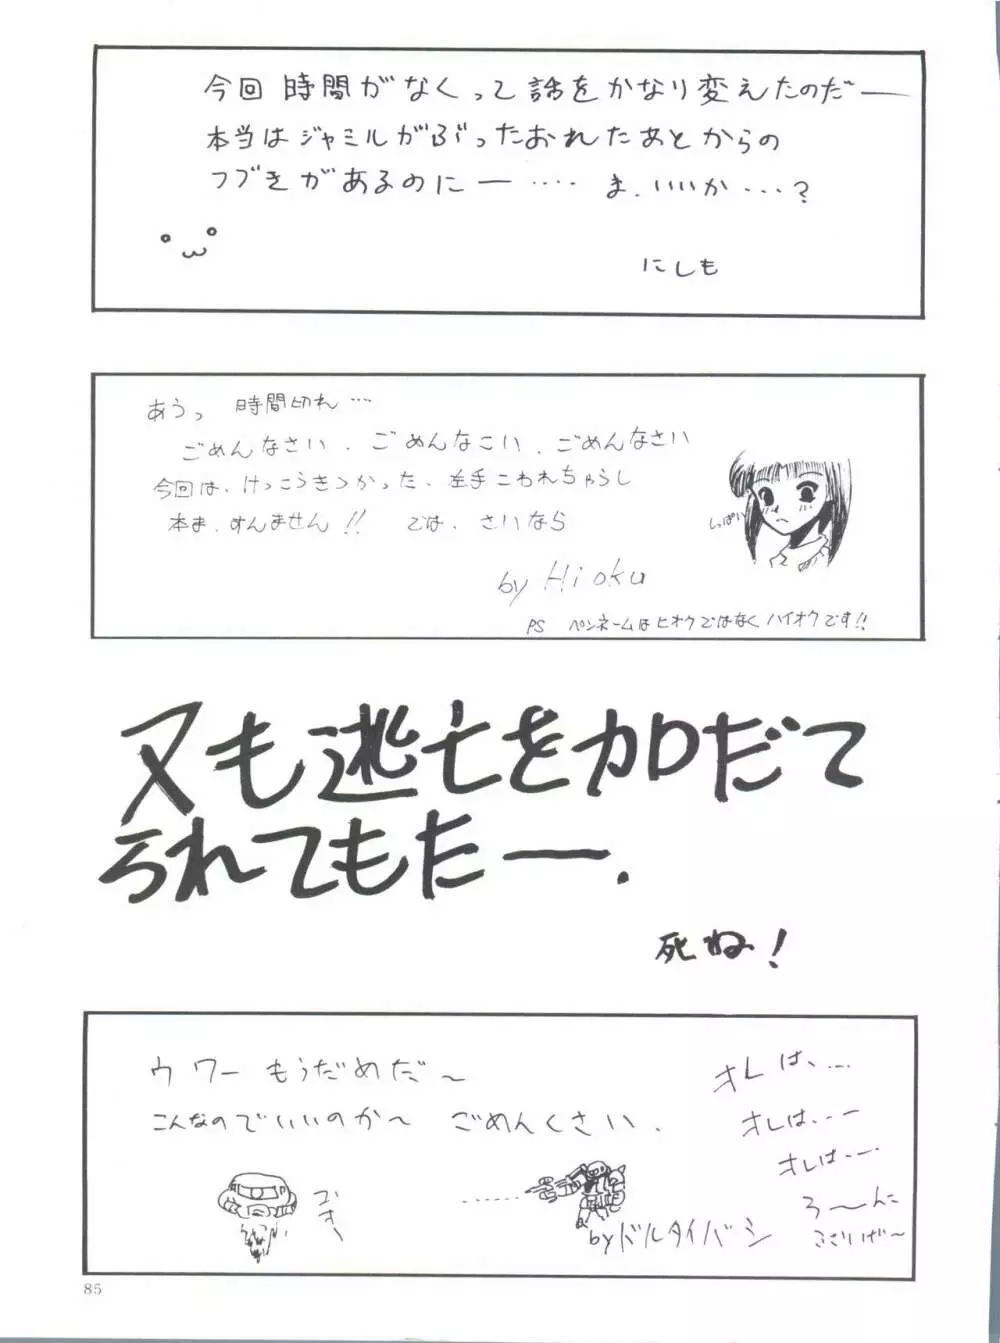 今回 時間がなくって話をかなり変えたのだー
本当はジャミルがぶったおれたあとからの
つづきがあるのにー‥‥ ま、いいか‥‥?
にしも
あうっ 時間切れ…
ごめんなさい、ごめんなこい、ごめんなさい
今回は、けっこうきつかった、左手こわれちゃうし
本ま、すんません!! では、さいなら
しっぱい
by Hioku
PS ペンネームはヒオクではなくハイオクです!!
又も逃亡をカロだて
られてもたー.
死ね!
ウワー もうだめだ〜
こんなのでいいのか〜 ごめんくさい.
オレは、…
オレは、--
オレは--
by ドルタイバシ
85